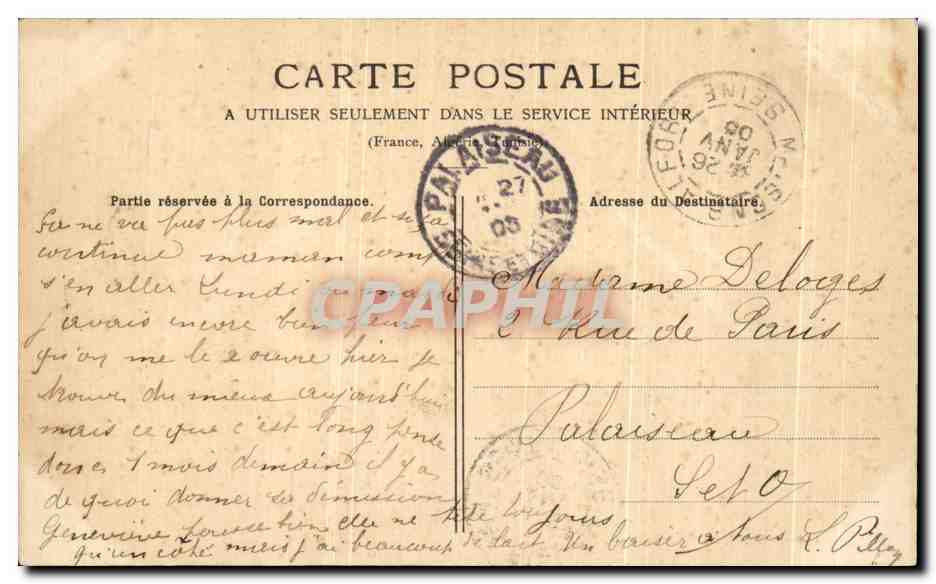 CARTE POSTALE
A UTILISER SEULEMENT DANS LE SERVICE INTÉRIEUR
(France, Algérie, Tunisie)
Partie réservée à la Correspondance.
Adresse du Destinataire.
PALAISEAU
27
08
SEINE ET OISE
SEINE
26
JANV
08
CPAPHIL
Ça ne va pas plus mal et si ça
continue maman compte
s'en aller Lundi ou mardi
j'avais encore bien peur
qu'on me le rouvre hier je
trouve du mieux aujourd'hui
mais ce que c'est long pense
donc 1 mois demain il y a
de quoi donner sa démission
Geneviève pousse bien elle ne tète toujours
qu'un côté mais j'ai beaucoup de lait Un baiser à tous L.
Madame Deloges
2 Rue de Paris
Palaiseau
S et O